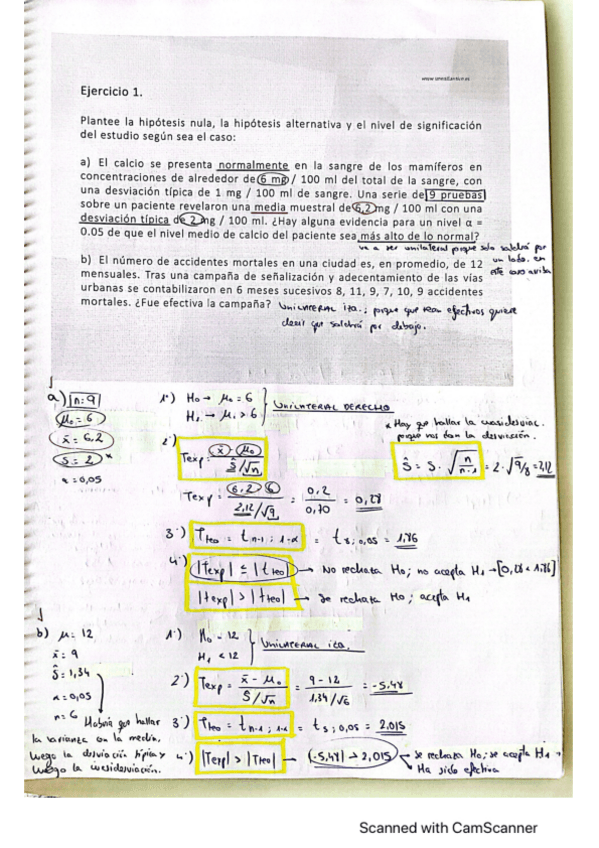 Ejercicio 1.
Plantee la hipótesis nula, la hipótesis alternativa y el nivel de significación
del estudio según sea el caso:
a) El calcio se presenta normalmente en la sangre de los mamíferos en
concentraciones de alrededor de 6 mg / 100 ml del total de la sangre, con
una desviación típica de 1 mg / 100 ml de sangre. Una serie de 9 pruebas
sobre un paciente revelaron una media muestral de 6,2 mg / 100 ml con una
desviación típica de 2 mg / 100 ml. ¿Hay alguna evidencia para un nivel α =
0.05 de que el nivel medio de calcio del paciente sea más alto de lo normal?
va a ser unilateral porque solo saldrá por
un lado. en
este caso arriba
b) El número de accidentes mortales en una ciudad es, en promedio, de 12
mensuales. Tras una campaña de señalización y adecentamiento de las vías
urbanas se contabilizaron en 6 meses sucesivos 8, 11, 9, 7, 10, 9 accidentes
mortales. ¿Fue efectiva la campaña? Unilateral izq.; porque que sean efectivos quiere
decir que saldrá por debajo.
a) n=9
μ₀=6
x̄=6,2
S=2 *
α=0,05
1º) H₀ → μ₀=6
H₁ → μ₁>6 } UNILATERAL DERECHO
* Hay que hallar la cuasidesviac.
porque nos dan la desviación.
2º) Texp = x̄ - μ₀ / Ŝ/√n
Ŝ = S · √n/n-1 = 2·√9/8 = 2,12
Texp = 6,2 - 6 / 2,12/√9 = 0,2 / 0,70 = 0,28
3º) Tteo = t n-1 ; 1-α = t 8; 0,05 = 1,86
4º) |Texp| ≤ |tteo| → No rechaza H₀; no acepta H₁ → [0,28 < 1,86]
|texp| > |tteo| → Se rechaza H₀; acepta H₁
b) μ=12
x̄=9
Ŝ=1,34
α=0,05
n=6
Habría que hallar
la varianza con la media,
luego la desviación típica y
luego la cuasidesviación.
1º) H₀ = 12
H₁ < 12 } UNILATERAL izq.
2º) Texp = x̄ - μ₀ / Ŝ/√n = 9-12 / 1,34/√6 = -5,48
3º) Tteo = t n-1 ; 1-α = t 5; 0,05 = 2,015
4º) |Texp| > |Tteo| → |-5,48| > 2,015 → Se rechaza H₀; se acepta H₁
Ha sido efectiva
Scanned with CamScanner